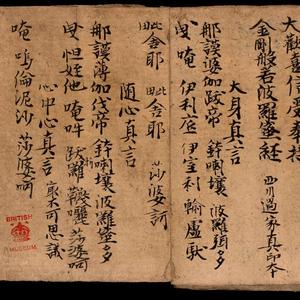 大歡喜信受奉行
金剛般若波羅蜜經
西川過家真印本
大身真言
那謨婆伽跋帝 鉢喇壤 波羅弭多
曳 唵 伊利底 伊室利 輸盧馱
毗舍耶 毗舍耶 莎婆訶
隨心真言
那謨薄伽伐帝 鉢喇壤 波羅蜜多
曳 怛姪他 唵吽 莎婆訶
心中心真言 不可思議
唵 嗚倫泥沙 莎婆訶
BRITISH
MUSEUM